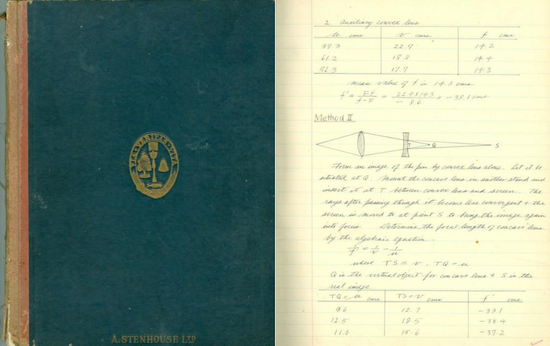 VIA VERITAS VITA
A. STENHOUSE LTD
2. Auxiliary convex lens
u cms v cms f cms
14.2
14.4
14.3
mean value of f is 14.3 cms
Method II
Q S
Form an image of the pin by convex lens alone. Let it be
situated at Q. Mount the concave lens in another stand and
insert it at T between convex lens and screen. The
rays after passing through it become less convergent & the
screen is moved to at point S to bring the image again
into focus. Determine the focal length of concave lens
by the algebraic equation.
1/f = 1/v - 1/u
where TS = v. TQ = u
Q is the virtual object for concave lens & S is the
real image
TQ = u cms TS = v cms f cms
9.6 12.7 -39.1
12.5 18.5 -38.4
11.0 15.6 -37.2